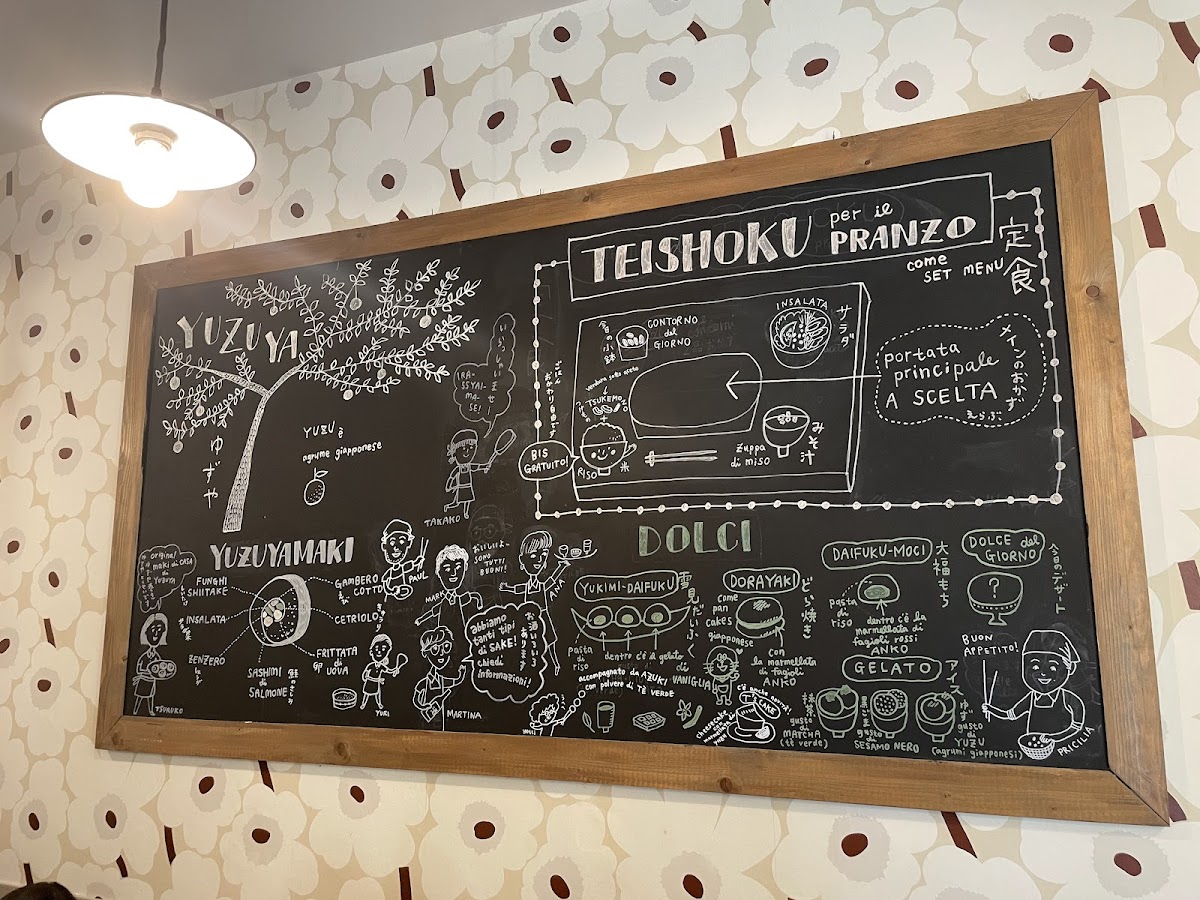 YUZUYA
ゆずや
YUZU è
agrume giapponese
IRA-
SSYAI-
MA-
SE!
いらっしゃいませ
TAKAKO
TEISHOKU per il
PRANZO
come
SET MENU
定食
CONTORNO
del
GIORNO
INSALATA
サラダ
verdure sotto aceto
TSUKEMONO
+
BIS
GRATUITO!
RISO
米
zuppa
di miso
みそ汁
portata
principale
A SCELTA
メインのおかず
えらぶ
YUZUYAMAKI
original
maki di CASA
di YUZUYA
FUNGHI
SHIITAKE
INSALATA
ZENZERO
SASHIMI
di
SALMONE
GAMBERO
COTTO
CETRIOLO
FRITTATA
di
UOVA
TSURUKO
YURI
PAUL
MARK
MARTINA
ANA
おいしいよ~
SONO
TUTTI
BUONI!
abbiamo
tanti tipi
di SAKE!
chiedi
informazioni!
DOLCI
YUKIMI-DAIFUKU
雪見だいふく
pasta
di
riso
dentro c'è il gelato
di
VANIGLIA
accompagnato da AZUKI
con polvere di TÈ VERDE
DORAYAKI
どら焼き
come
pan
cakes
giapponese
con
la marmellata
di fagioli
ANKO
c'è anche
CHEESECAKE
DAIFUKU-MOCI
大福もち
pasta
di
riso
dentro c'è la
marmellata di
fagioli rossi
ANKO
DOLCE del
GIORNO
今日のデザート
?
GELATO
アイス
抹茶
gusto
di
MATCHA
(tè verde)
gusto
di
SESAMO NERO
ゆず
gusto
di
YUZU
(agrumi giapponesi)
BUON
APPETITO!
PRICILIA